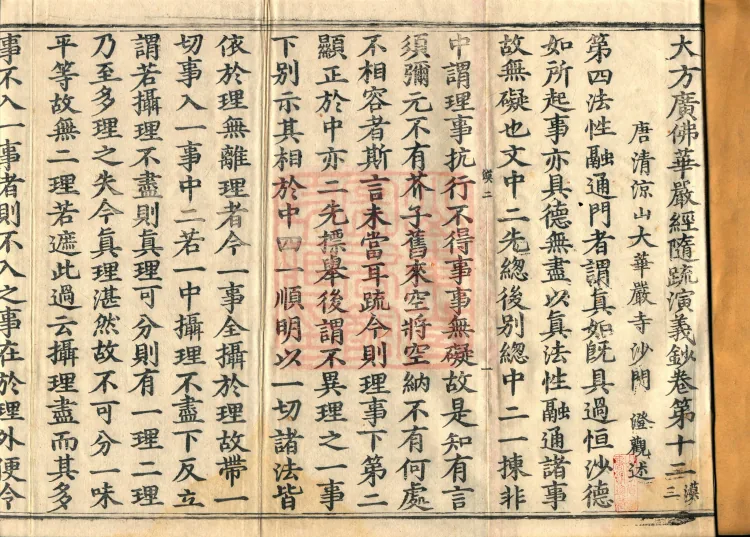 大方廣佛華嚴經隨疏演義鈔卷第十二 漠三
唐清涼山大華嚴寺沙門 澄觀述
第四法性融通門者謂真如既具過恒沙德
如所起事亦具德無盡以真法性融通諸事
故無礙也文中二先總後別總中二一揀非
漠二 一
中謂理事抗行不得事事無礙故是知有言
須彌元不有芥子舊來空將空納不有何處
不相容者斯言未當耳疏今則理事下第二
顯正於中亦二先標舉後謂不異理之一事
下別示其相於中四一順明以一切諸法皆
依於理無離理者今一事全攝於理故帶一
切事入一事中二若一中攝理不盡下反立
謂若攝理不盡則真理可分則有一理二理
乃至多理之失今真理湛然故不可分一味
平等故無二理若遮此過云攝理盡而其多
事不入一事者則不入之事在於理外便令